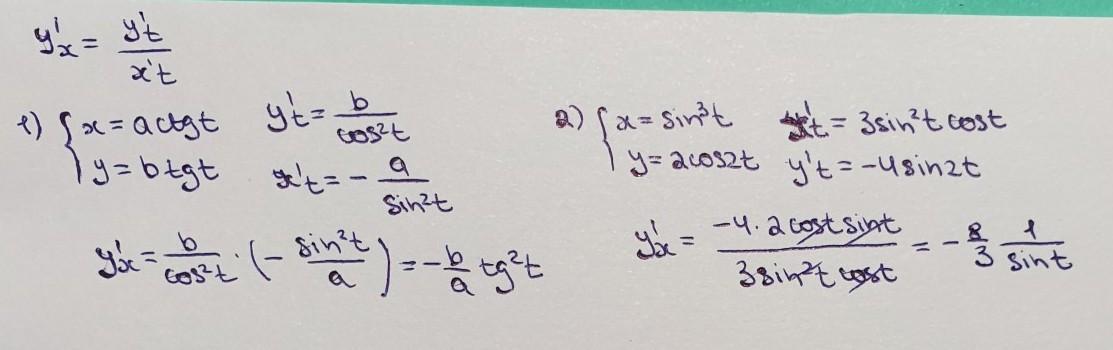 y'x = y't / x't
1) { x = a ctg t   y't = b / cos²t
y = b tg t   x't = - a / sin²t
y'x = b / cos²t · (- sin²t / a) = - b/a tg²t
2) { x = sin³t   x't = 3 sin²t cos t
y = 2 cos 2t   y't = -4 sin 2t
y'x = -4 · 2 cos t sin t / 3 sin²t cos t = - 8/3 1/sin t